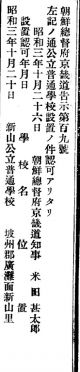 朝鮮總督府京畿道吿示第百九號
左記ノ通公立普通學校設置ノ件認可アリタリ
昭和三年十月二十六日
朝鮮總督府京畿道知事 米田甚太郎
設置認可年月日 學校名 位置
昭和三年十月二十日 新山公立普通學校 坡州郡廣灘面新山里